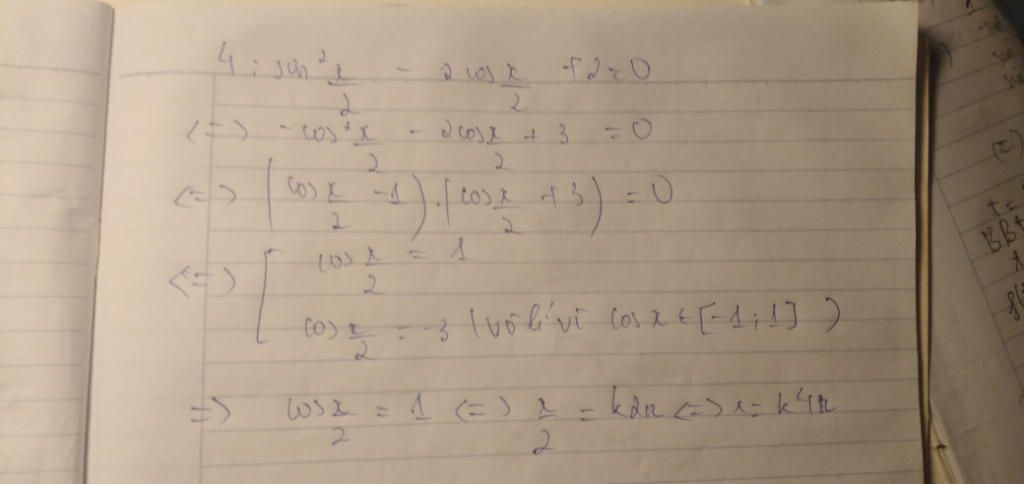 4: sin² x/2 - 2cos x/2 + 2 = 0
<=> -cos² x/2 - 2cos x/2 + 3 = 0
<=> (cos x/2 - 1).(cos x/2 + 3) = 0
<=> [ cos x/2 = 1
cos x/2 = -3 (vô lí vì cos x ∈ [-1; 1])
=> cos x/2 = 1 <=> x/2 = k2π <=> x = k4π